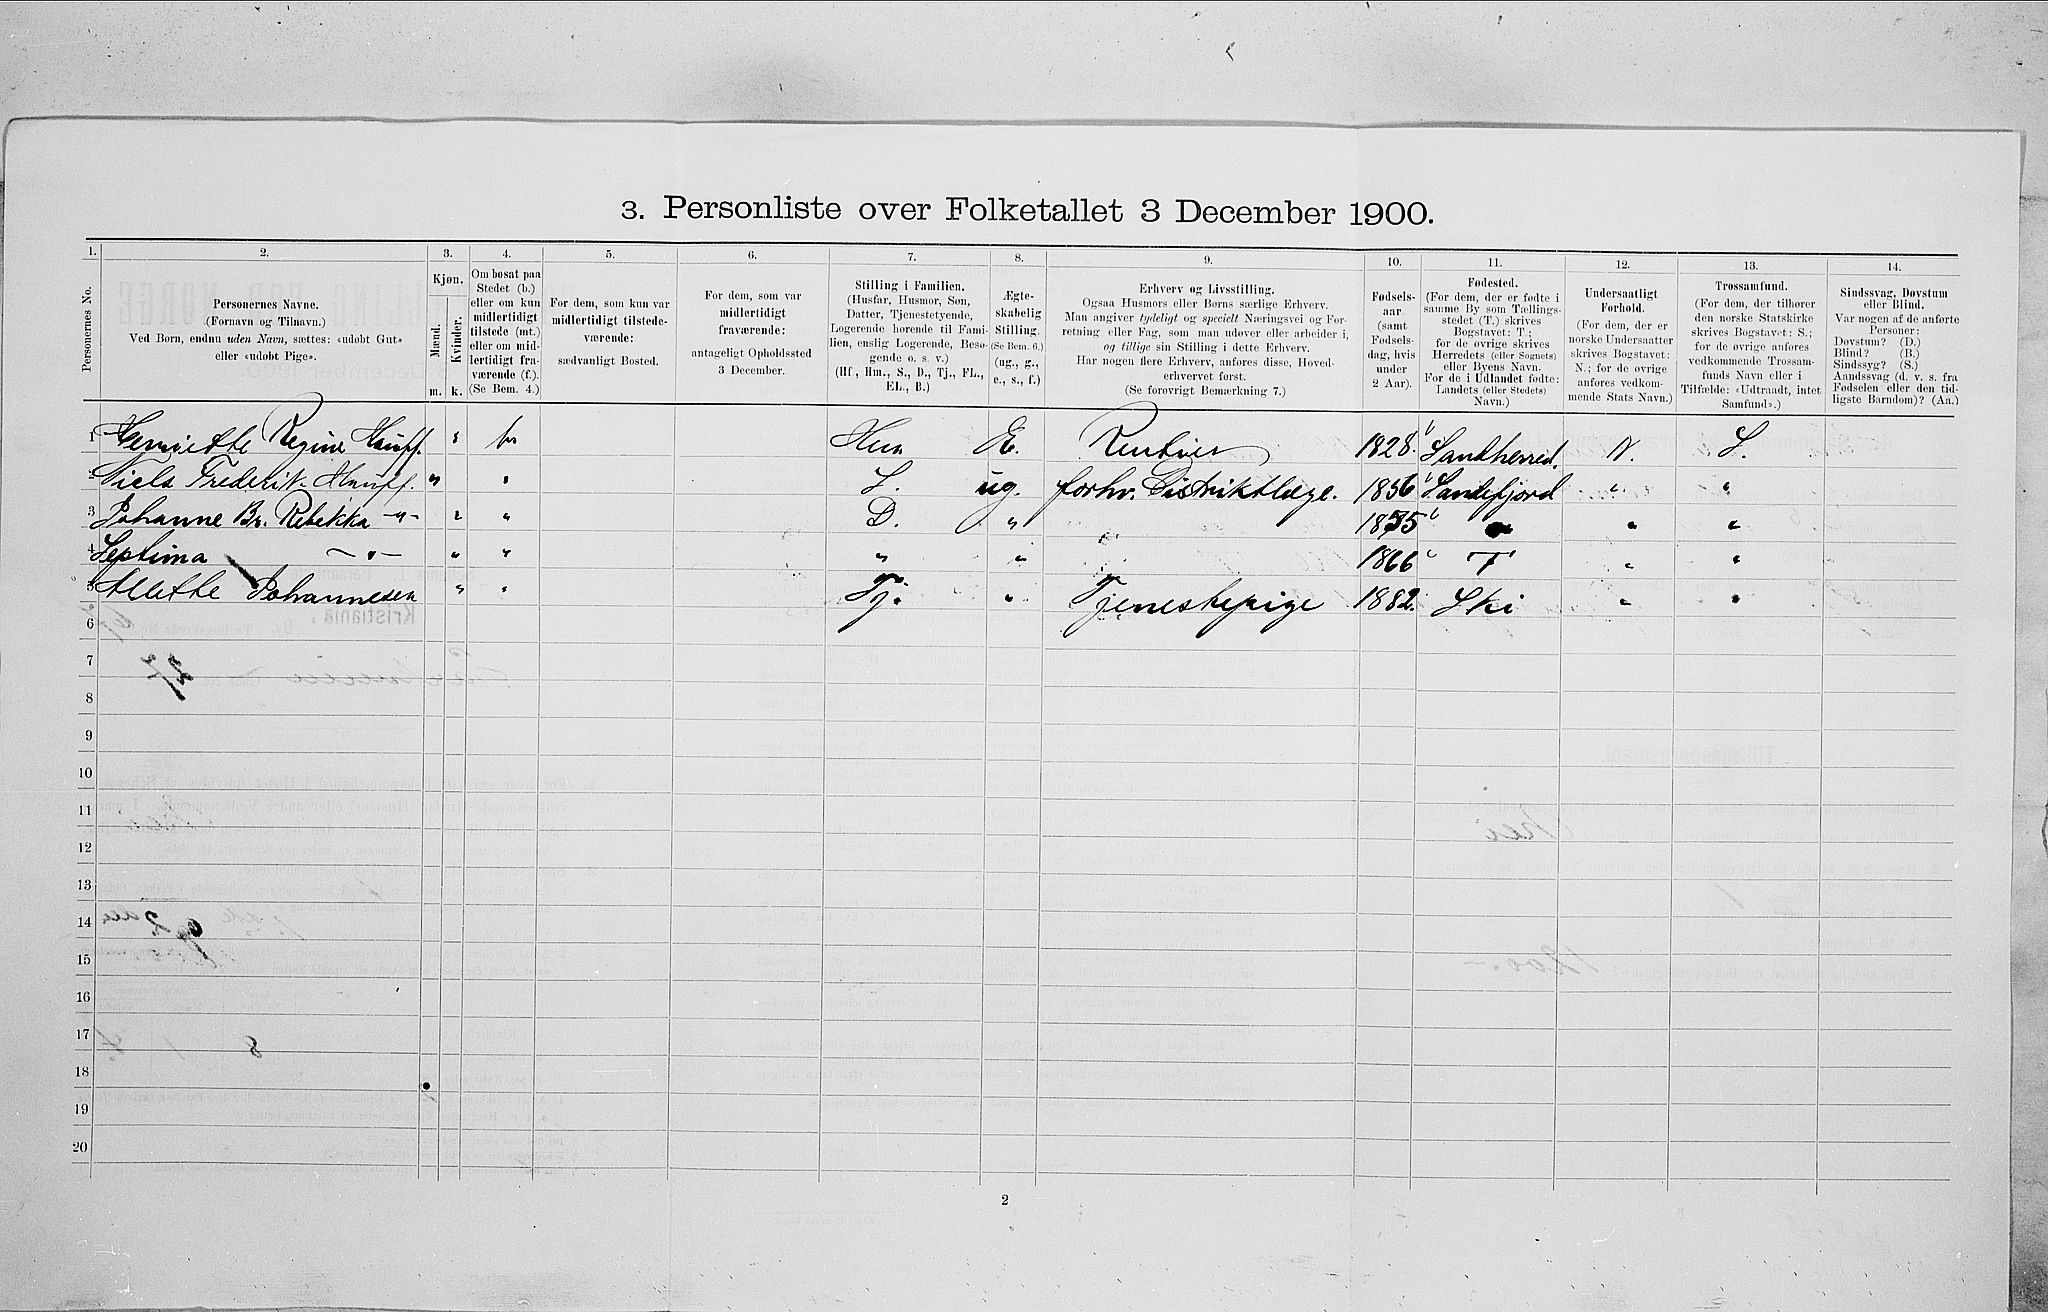 3. Personliste over Folketallet 3 December 1900.
1. 2. 3. 4. 5. 6. 7. 8. 9. 10. 11. 12. 13. 14.
Personernes No.
Personernes Navne.
(Fornavn og Tilnavn.)
Ved Børn, endnu uden Navn, sættes: «udøbt Gut»
eller «udøbt Pige».
Kjøn.
Mænd.
Kvinder.
m. k.
Om bosat paa
Stedet (b.)
eller om kun
midlertidigt
tilstede (mt.)
eller om mid-
lertidigt fra-
værende (f.).
(Se Bem. 4.)
For dem, som kun var
midlertidigt tilstede-
værende:
sædvanligt Bosted.
For dem, som var
midlertidigt
fraværende:
antageligt Opholdssted
3 December.
Stilling i Familien.
(Husfar, Husmor, Søn,
Datter, Tjenestetyende,
Logerende hørende til Fami-
lien, enslig Logerende, Besø-
gende o. s. v.)
(Hf, Hm., S., D., Tj., FL.,
EL., B.)
Ægte-
skabelig
Stilling.
(Se Bem. 6.)
(ug., g.,
e., s., f.)
Erhverv og Livsstilling.
Ogsaa Husmors eller Børns særlige Erhverv.
Man angiver tydeligt og specielt Næringsvei og For-
retning eller Fag, som man udøver eller arbeider i,
og tillige sin Stilling i dette Erhverv.
Har nogen flere Erhverv, anføres disse, Hoved-
erhvervet først.
(Se forøvrigt Bemærkning 7.)
Fødsels-
aar
(samt
Fødsels-
dag, hvis
under
2 Aar).
Fødested.
(For dem, der er fødte i
samme By som Tællings-
stedet (T.) skrives
Bogstavet: T;
for de øvrige skrives
Herredets (eller Sognets)
eller Byens Navn.
For de i Udlandet fødte:
Landets (eller Stedets)
Navn.)
Undersaatligt
Forhold.
(For dem, der er
norske Undersaatter
skrives Bogstavet:
N.; for de øvrige
anføres vedkom-
mende Stats Navn.)
Trossamfund.
(For dem, der tilhører
den norske Statskirke
skrives Bogstavet: S.;
for de øvrige anføres
vedkommende Trossam-
funds Navn eller i
Tilfælde: «Udtraadt, intet
Samfund».)
Sindssvag, Døvstum
eller Blind.
Var nogen af de anførte
Personer:
Døvstum? (D.)
Blind? (B.)
Sindssyg? (S.)
Aandssvag (d. v. s. fra
Fødselen eller den tid-
ligste Barndom)? (Aa.)
1 Henriette Regine Hauff. b Hm E. Rentier 1828 Sandherred. N. S.
2 Niels Frederik Hauff. " " S. ug. forhv. Distriktlæge. 1856 Sandefjord " "
3 Johanne Br. Rebekka -"- " D. " 1855 " " "
4 Septima -"- " " " " 1866 T " "
5 Mette Johannesen " " Tj. " Tjenestepige 1882. Ski " "
6
7
8
9
10
11
12
13
14
15
16
17
18
19
20
2